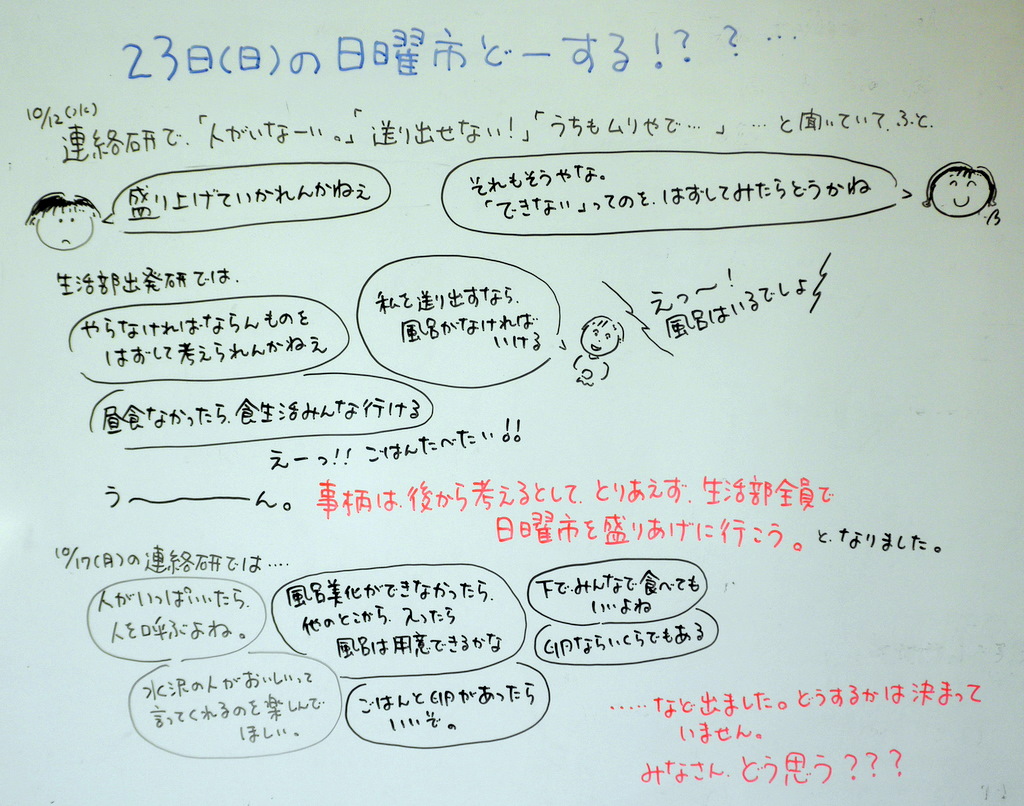 23日(日)の日曜市どーする!??…
10/12(水)
連絡研で、「人がいなーい。」「送り出せない!」「うちもムリやで…」…と聞いていて、ふと、
盛り上げていかれんかねぇ
それもそうやな。
「できない」ってのを、はずしてみたらどうかね
生活部出発研では、
やらなければならんものを
はずして考えられんかねぇ
私を送り出すなら、
風呂がなければ
いける
えっ〜!
風呂はいるでしょ
昼食なかったら、食生活みんな行ける
えーっ!! ごはんたべたい!!
う〜ん。事柄は、後から考えるとして、とりあえず、生活部全員で
日曜市を盛りあげに行こう。と、なりました。
10/17(月)の連絡研では….
人がいっぱいいたら、
人を呼ぶよね。
風呂美化ができなかったら、
他のとこから、入ったら
風呂は用意できるかな
下で、みんなで食べても
いいよね
卵ならいくらでもある
水沢の人がおいしいって
言ってくれるのを楽しんで
ほしい。
ごはんと卵があったら
いいぞ。
……など出ました。どうするかは決まって
いません。
みなさん、どう思う???